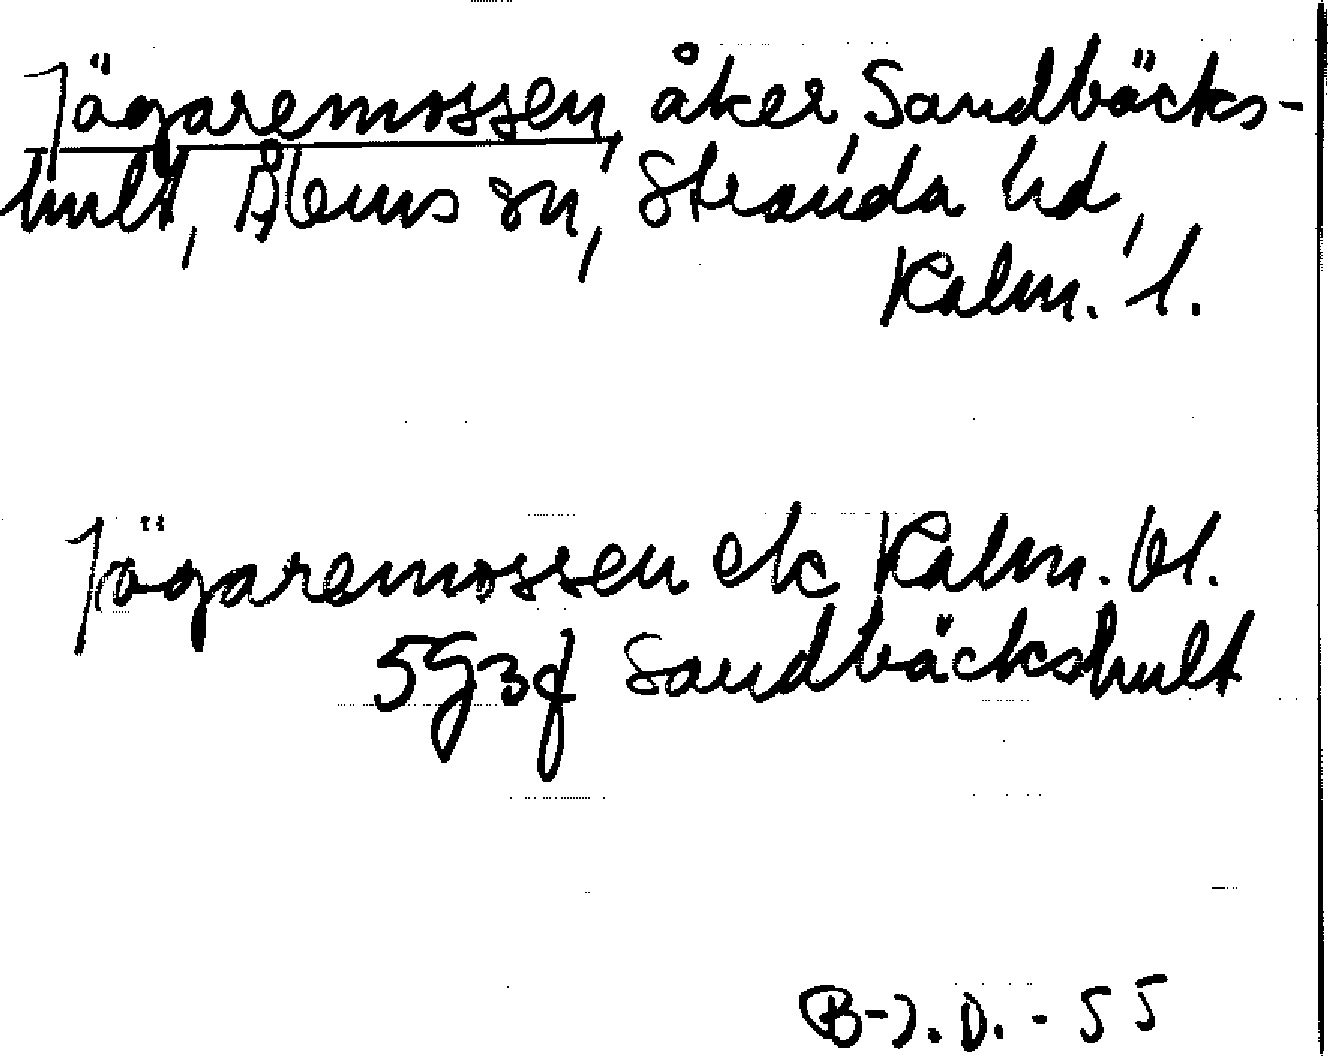 Jägaremossen, åker, Sandbäcks-
hult, Ålems sn, Stranda hd,
Kalm. l.
Jägaremossen ek Kalm. bl.
5G3f Sandbäckshult
B-J.D.-55